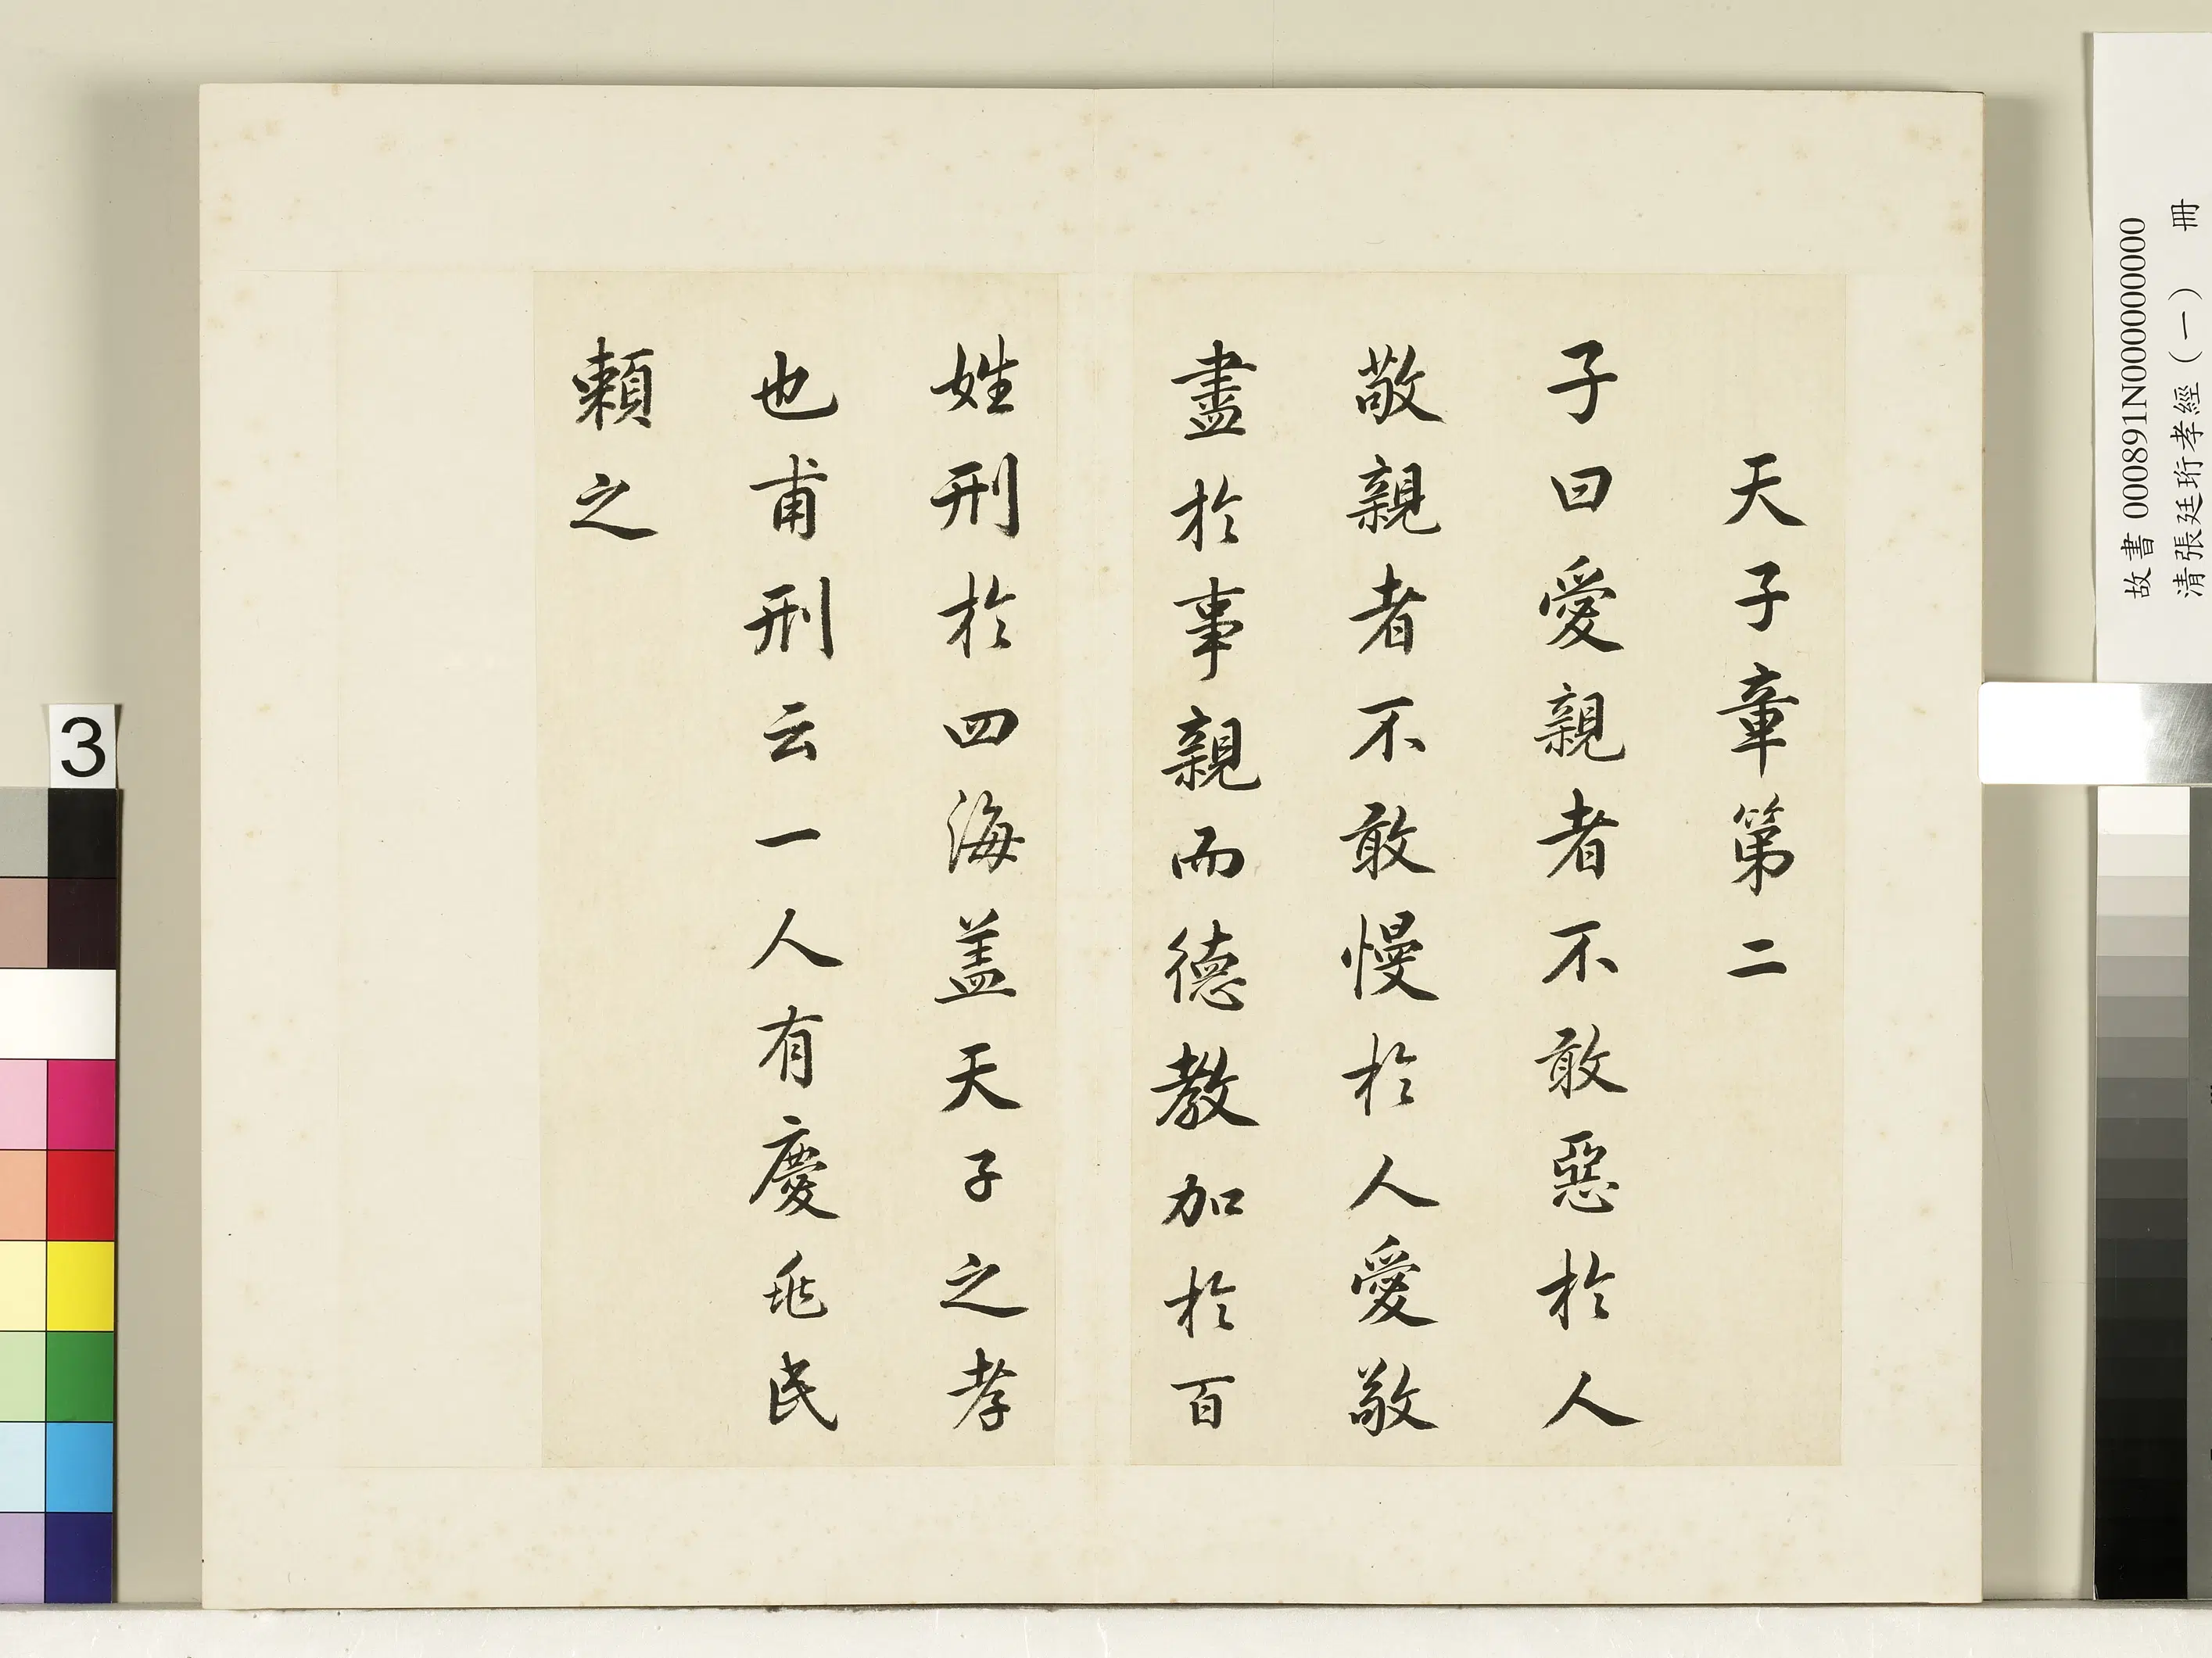 天子章第二
子曰愛親者不敢惡於人
敬親者不敢慢於人愛敬
盡於事親而德教加於百
姓刑於四海盖天子之孝
也甫刑云一人有慶兆民
賴之
故書 000891N000000000
清張廷珩孝經(一) 冊
3